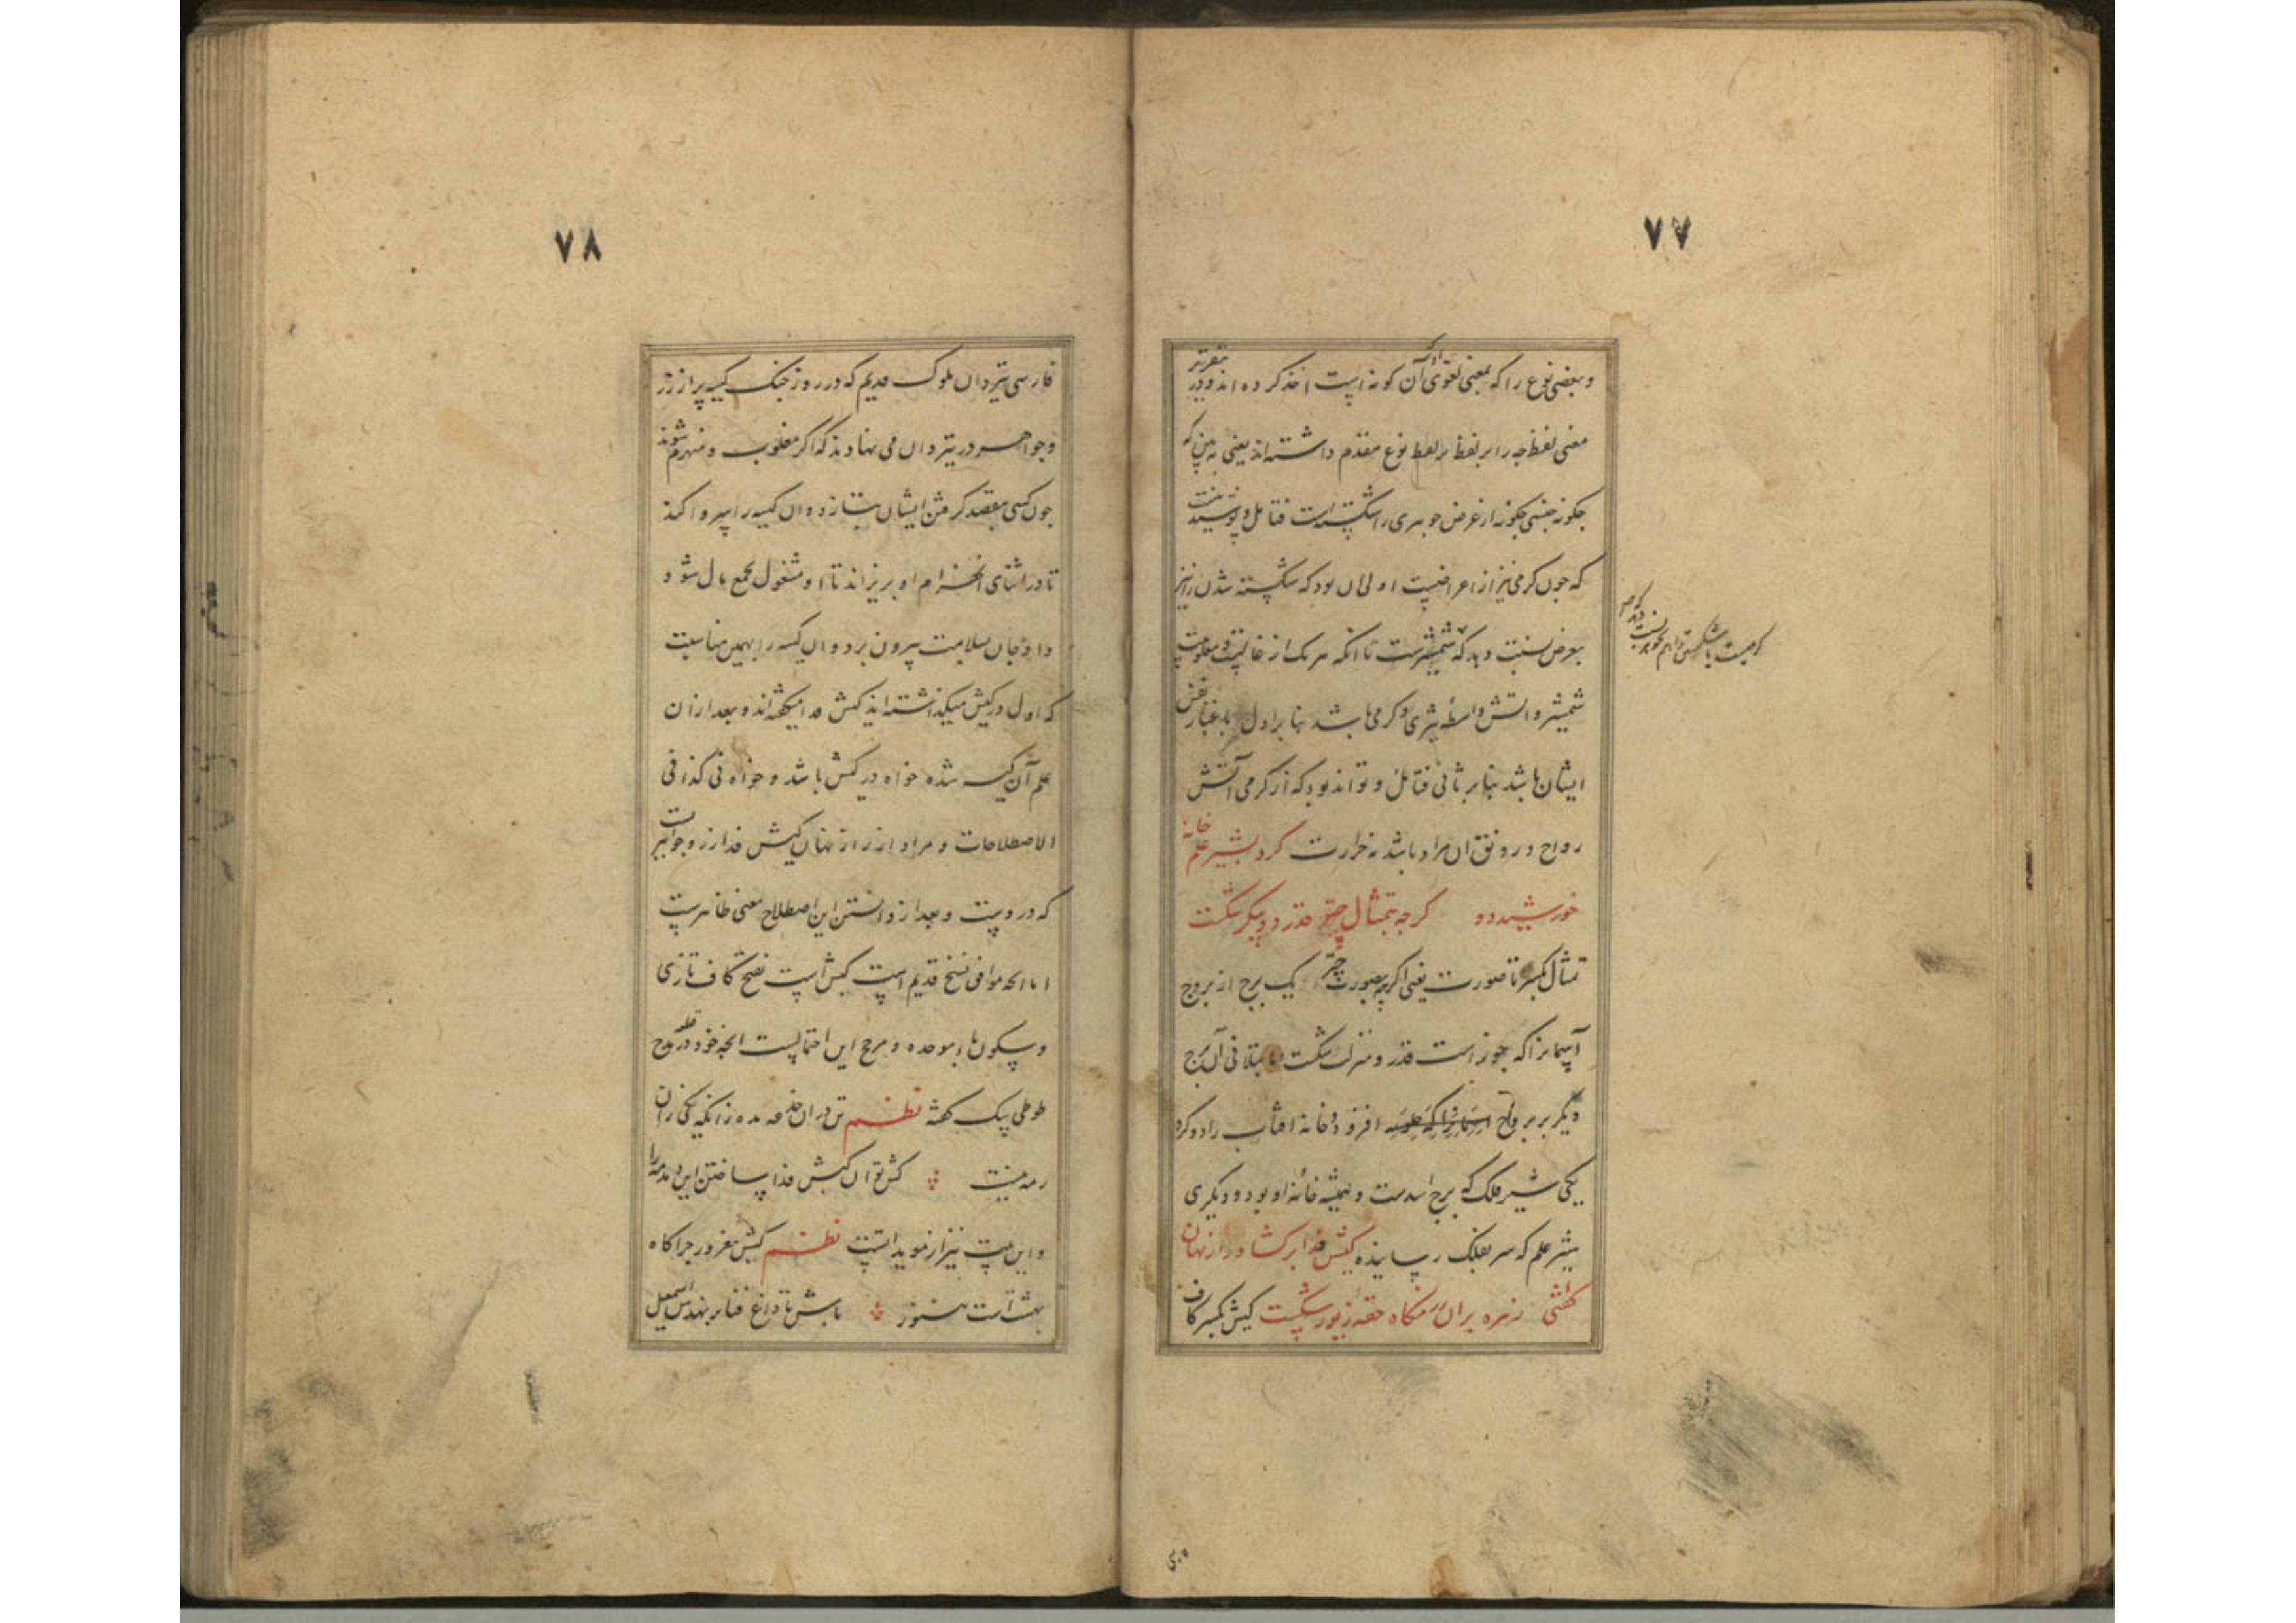 ۷۷
وبعضی نوع را که بمعنی لغوی آن کونه است اخذ کرده اند ودر تقریر
معنی لفظ چه را بر لفظ بر لفظ نوع مقدم داشته اند یعنی به بین که
چکونه جنسی چکونه از عرض جوهری را شکسته است فتامل و پوشیده نیست
که چون کرمی نیز از اعراضست اولی ان بود که شکسته شدن را نیز
بعرض نسبت دهد که شمشیرست تا انکه هر یک از غالبیت و مغلوبیت
شمشیر و اتش واسطه تیزی و کرمی باشد بنا بر اول باعتبار نفس
ایشان باشد بنا بر ثانی فتامل و تواند بود که از کرمی آتش
رواج و رونق ان مراد باشد نه حرارت کرد بشیر علم خانه
خورشید دو کرچه بتمثال چتر قدر دو پیکر شکست
تمثال بکسر تا صورت یعنی اکرچه بصورت چتر یک برج از بروج
آسمانرا که جوزاست قدر و منزلت شکست اما بتلافی آن برج
دیکر بر بروج افزود و خانه افتاب را دو کرد
یکی شیر فلک که برج اسدست و همیشه خانه او بود و دیکری
شیر علم که سر بفلک رسانیده کیش فدا بر کشاد راز نهان
کفتی زهره بران رزمکاه حقه زیور شکست کیش بکسر کاف
۷۸
فارسی تیردان ملوک قدیم که در روز جنک کیسه پر از زر
وجواهر در تیردان می نهادند که اکر مغلوب و منهزم شوند
چون کسی بقصد کرفتن ایشان بتازد وان کیسه را سر وا کنند
تا در اثنای انهزام او بریزاند تا او مشغول بجمع مال شود و
داو جان بسلامت بیرون برد و ان کیسه را بهمین مناسبت
که اول در کیش میکذاشته اند کیش فدا میکفته اند و بعد از ان
علم آن کیسه شده خواه در کیش باشد و خواه نی کذا فی
الاصطلاحات و مراد از راز نهان کیش فدا زر و جواهرست
که دروست و بعد از دانستن این اصطلاح معنی ظاهرست
اما انچه موافق نسخ قدیم است کبش است بفتح کاف تازی
وسکون باء موحده و مرجح این احتمالست انچه خود در مدح
طوطی بیک کفته نظم تن دران خدعه مده زانکه یکی زان
رمه نیست کش توان کبش فدا ساختن این دمدمه را
واین بیت نیز از مویداتست نظم کبش مغرور چراکاه
بهشت است هنوز باش تا داغ فنا بر نهدش اسمعیل